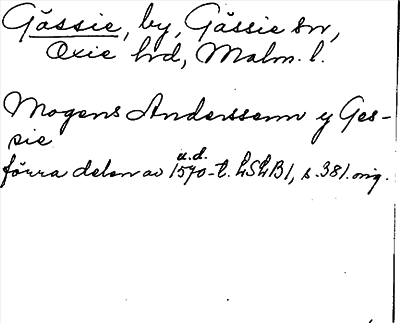 Gässie, by, Gässie sn,
Oxie hrd, Malm. l.
Mogens Anderssenn y Ges-
sie
u.d.
förra delen av 1570-t. LSLB1, s. 381. orig.